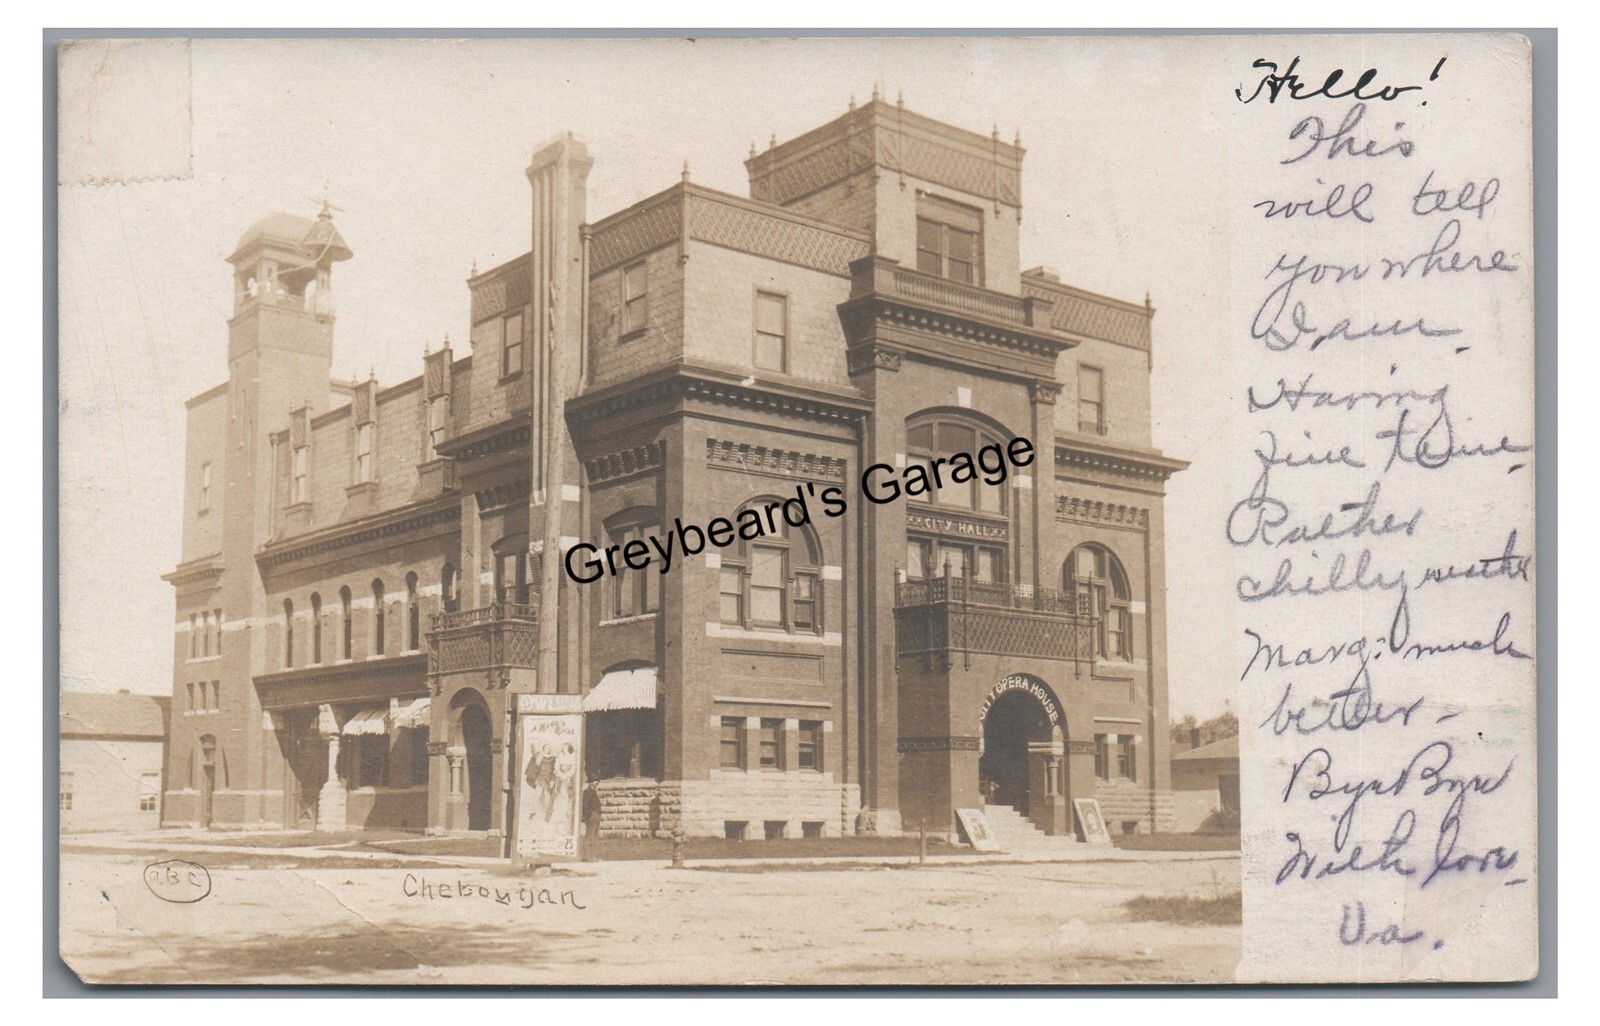 Hello!
This
will tell
you where
I am.
Having
fine time.
Rather
chilly weather
Marg: much
better -
Bye Bye
With love -
Va.
CITY HALL
CITY OPERA HOUSE.
Greybeard's Garage
25
ABC
Cheboygan